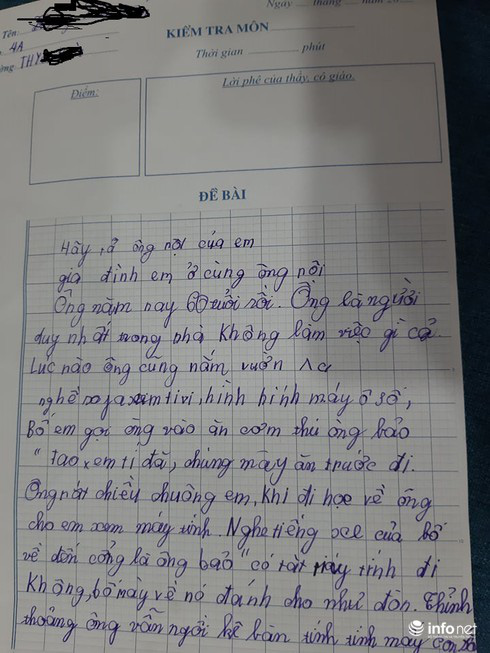 Ngày tháng năm 20
Tên
4A
KIỂM TRA MÔN
Thời gian phút
THY
Điểm:
Lời phê của thầy, cô giáo.
ĐỀ BÀI
Hãy tả ông nội của em
gia đình em ở cùng ông nội
Ông năm nay 60 tuổi rồi. Ông là người
duy nhất trong nhà không làm việc gì cả.
Luc nào ông cũng nằm vườn
xem tivi, hình hình máy ô số,
Bố em gọi ông vào ăn cơm thì ông bảo
"Tao xem tí đã, chúng mày ăn trước đi.
Ông rất chiều chuộng em, khi đi học về ông
cho em xem máy tính. Nghe tiếng xe của bố
về đến cổng là ông bảo "có tắt máy tính đi
không, bố mày về nó đánh cho như đòn. Thỉnh
thoảng ông vẫn ngồi kê bàn tính tính mấy con
infonet